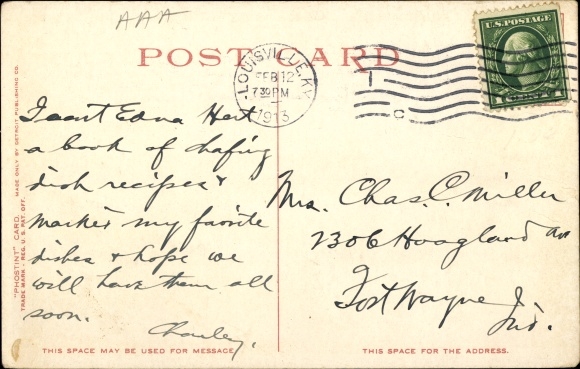 AAA
POST CARD
LOUISVILLE, KY.
FEB 12
7 30 PM
1913
U.S. POSTAGE
I sent Edna Hert
a book of chafing
dish recipes &
marked my favorite
dishes & hope we
will have them all
soon.
Charley.
Mrs. Chas. C. Miller
2306 Hoagland Av
Fort Wayne
Ind.
"PHOSTINT" CARD. MADE ONLY BY DETROIT PUBLISHING CO.
TRADE MARK REG. U.S. PAT. OFF.
THIS SPACE MAY BE USED FOR MESSAGE
THIS SPACE FOR THE ADDRESS.